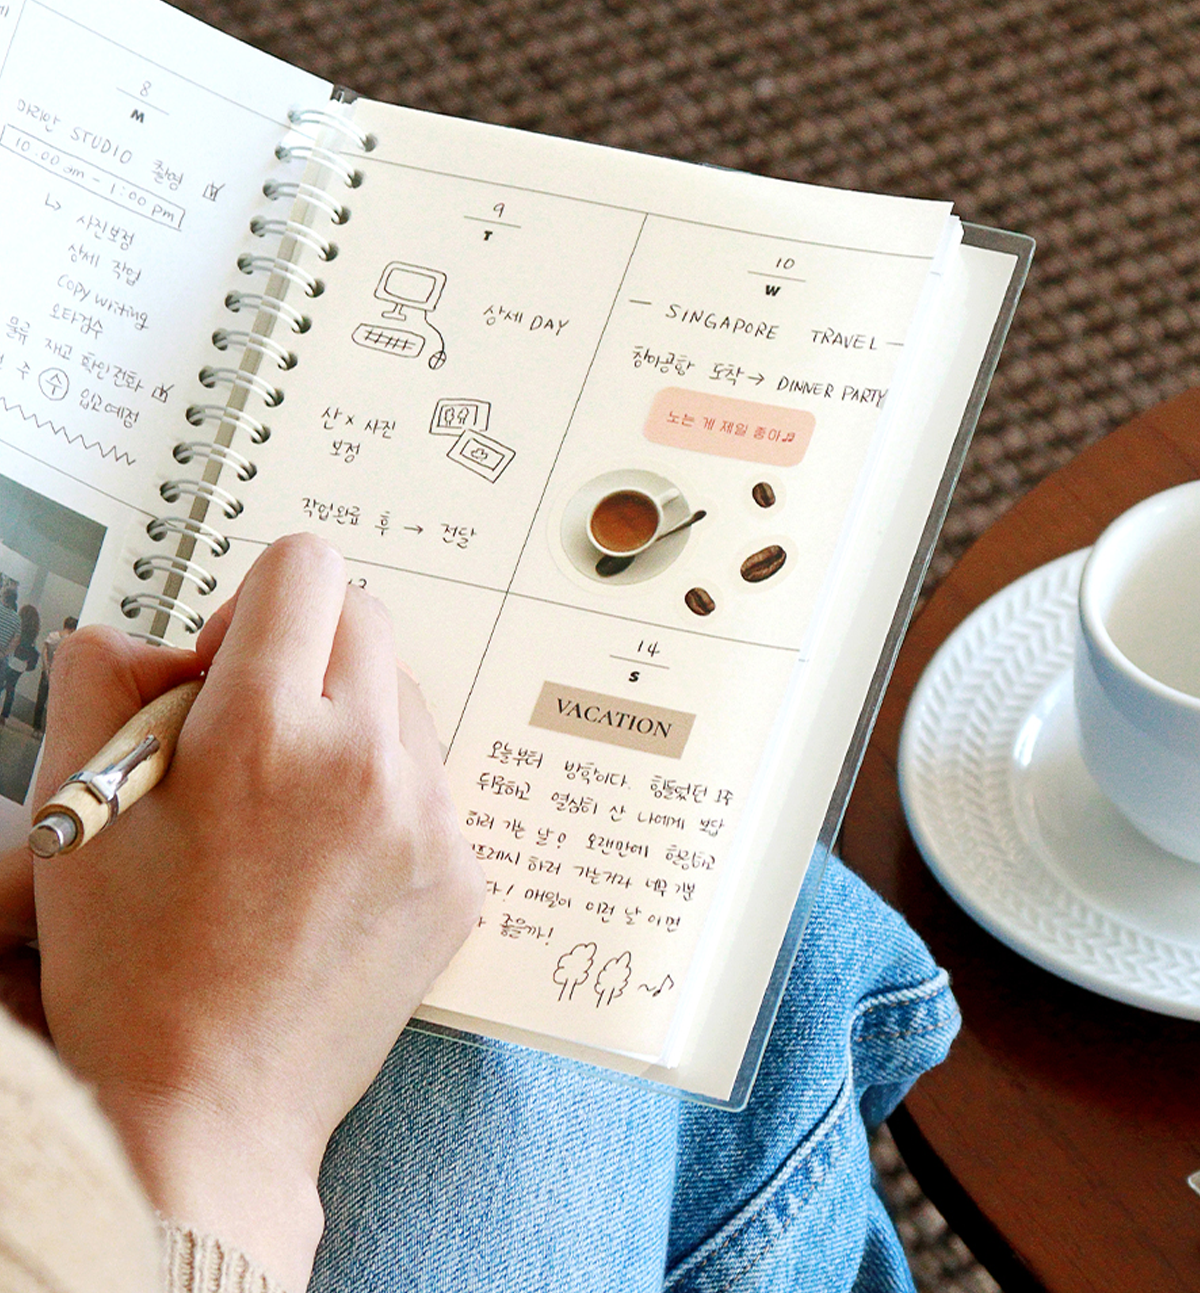 8
M
마리안 STUDIO 촬영
10:00 am - 1:00 pm
↳ 사진보정
상세 작업
copy writing
오타검수
물류 재고 확인전화
주 수 입고예정
9
T
상세 DAY
산 x 사진
보정
작업완료 후 → 전달
10
W
— SINGAPORE TRAVEL —
창이공항 도착 → DINNER PARTY
노는 게 제일 좋아♬
14
S
VACATION
오늘부터 방학이다. 힘들었던 1주
뒤로하고 열심히 산 나에게 보답
하러 가는 날? 오랜만에 힐링하고
프레시 하러 가는거라 너무 기분
다! 매일이 이런 날이면
좋을까!